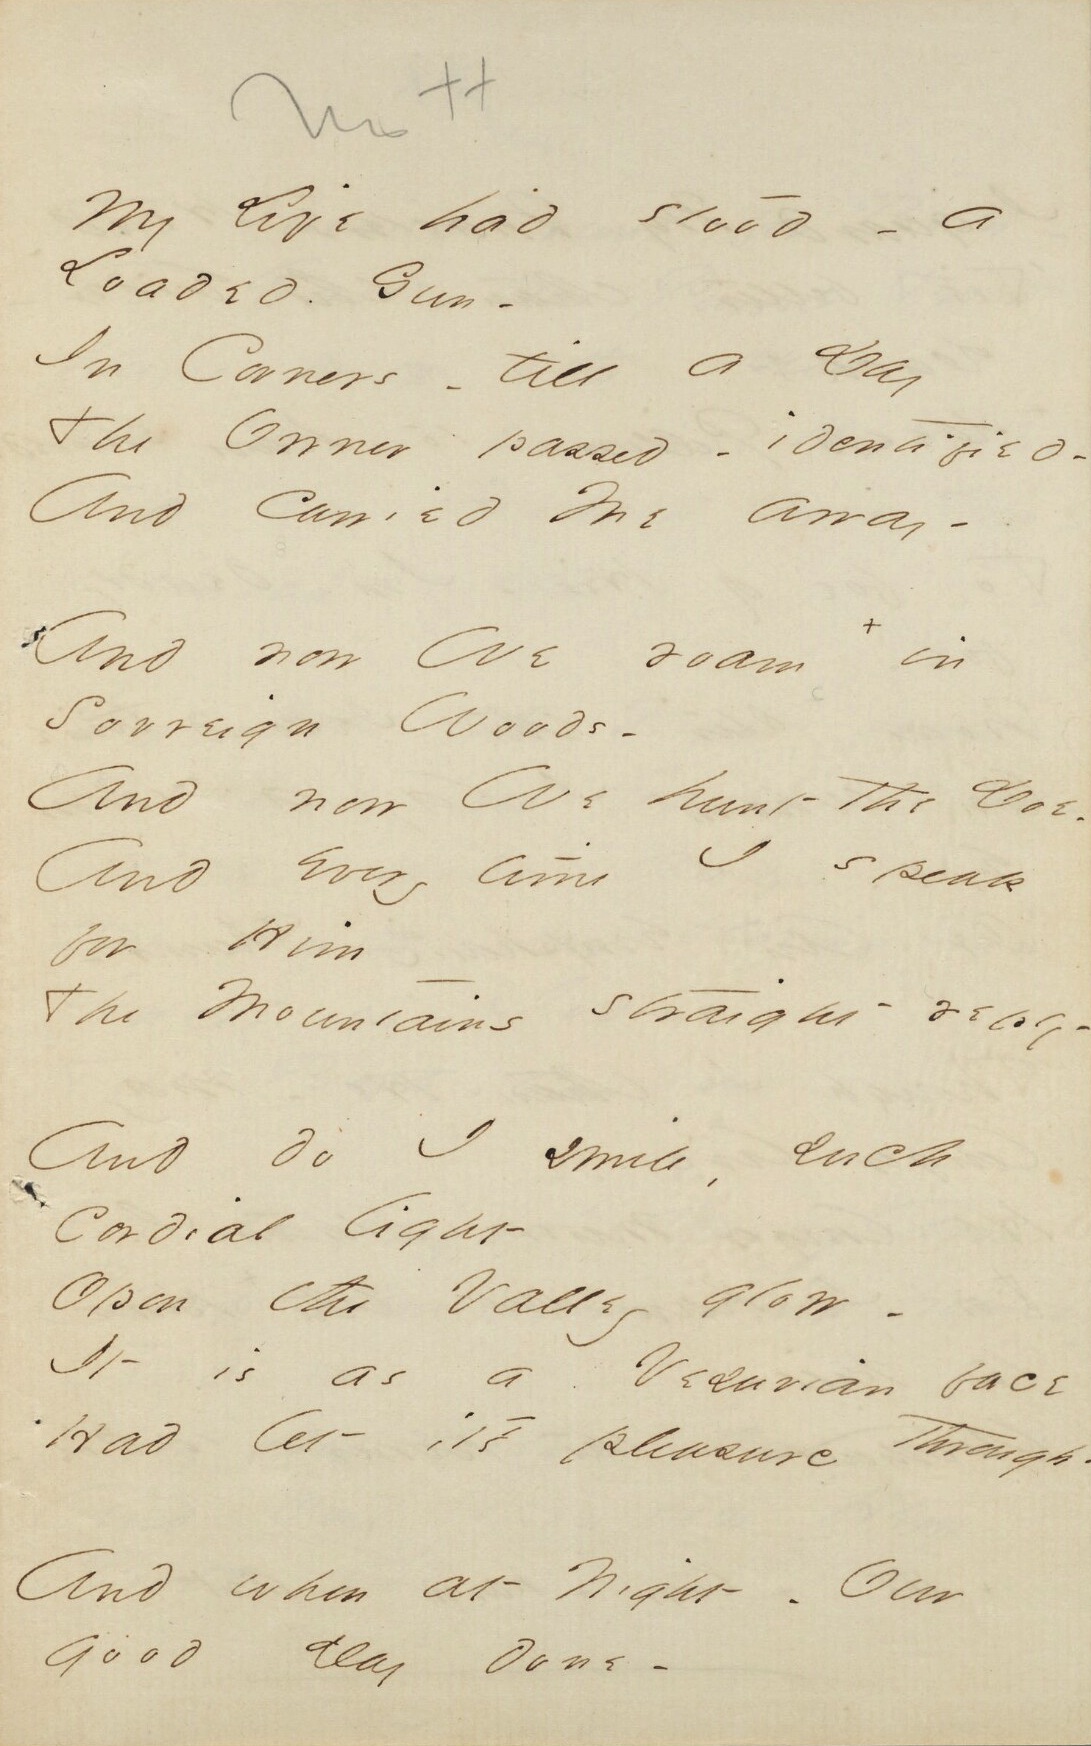 My Life had stood - a
Loaded Gun -
In Corners - till a Day
The Owner passed - identified -
And carried Me away -
And now We roam + in
Sovreign Woods -
And now We hunt the Doe -
And every time I speak
for Him
The Mountains straight reply -
And do I smile, such
cordial light
Opon the Valley glow -
It is as a Vesuvian face
Had let it's pleasure through -
And when at Night - Our
good Day done -